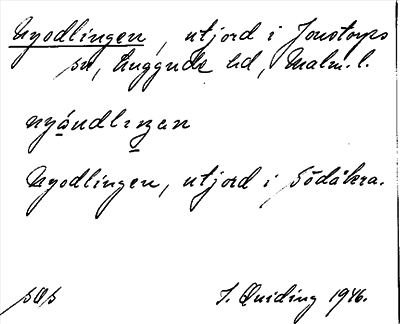 Nyodlingen, utjord i Jonstorps
sn, Luggude hd, Malm. l.
nyåudlingan
Nyodlingen, utjord i Södåkra.
S. Quiding 1946.